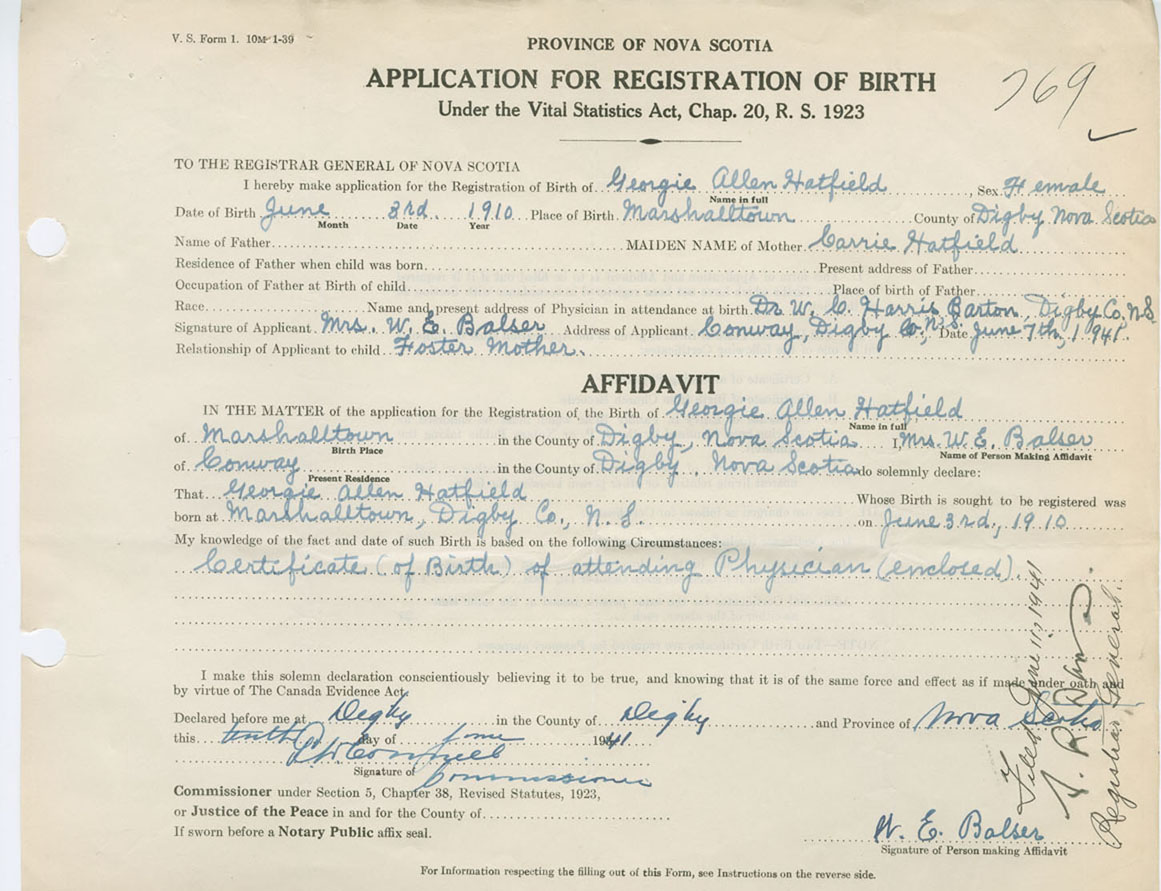 V. S. Form 1. 10M-1-39
PROVINCE OF NOVA SCOTIA
APPLICATION FOR REGISTRATION OF BIRTH
769
Under the Vital Statistics Act, Chap. 20, R. S. 1923
TO THE REGISTRAR GENERAL OF NOVA SCOTIA
I hereby make application for the Registration of Birth of Georgie Allen Hatfield, Sex Female
Name in full
Date of Birth June 3rd. 1910 Place of Birth Marshalltown County of Digby Nova Scotia
Month Date Year
Name of Father MAIDEN NAME of Mother Carrie Hatfield
Residence of Father when child was born Present address of Father
Occupation of Father at Birth of child Place of birth of Father
Race Name and present address of Physician in attendance at birth Dr. W. C. Harris, Barton, Digby Co. N.S.
Signature of Applicant Mrs. W. E. Balser Address of Applicant Conway, Digby Co., N.S. Date June 7th, 1941.
Relationship of Applicant to child Foster Mother.
AFFIDAVIT
IN THE MATTER of the application for the Registration of the Birth of Georgie Allen Hatfield
Name in full
of Marshalltown in the County of Digby, Nova Scotia I, Mrs. W. E. Balser
Birth Place Name of Person Making Affidavit
of Conway in the County of Digby, Nova Scotia do solemnly declare:
Present Residence
That Georgie Allen Hatfield Whose Birth is sought to be registered was
born at Marshalltown, Digby Co., N. S. on June 3rd, 1910
My knowledge of the fact and date of such Birth is based on the following Circumstances:
Certificate (of Birth) of attending Physician (enclosed).
I make this solemn declaration conscientiously believing it to be true, and knowing that it is of the same force and effect as if made under oath and
by virtue of The Canada Evidence Act.
Declared before me at Digby in the County of Digby and Province of Nova Scotia
this tenth day of June 1941
Signature of Commissioner
Commissioner under Section 5, Chapter 38, Revised Statutes, 1923,
or Justice of the Peace in and for the County of
If sworn before a Notary Public affix seal.
W. E. Balser
Signature of Person making Affidavit
For Information respecting the filling out of this Form, see Instructions on the reverse side.
Filed June 11, 1941
Registrar General.